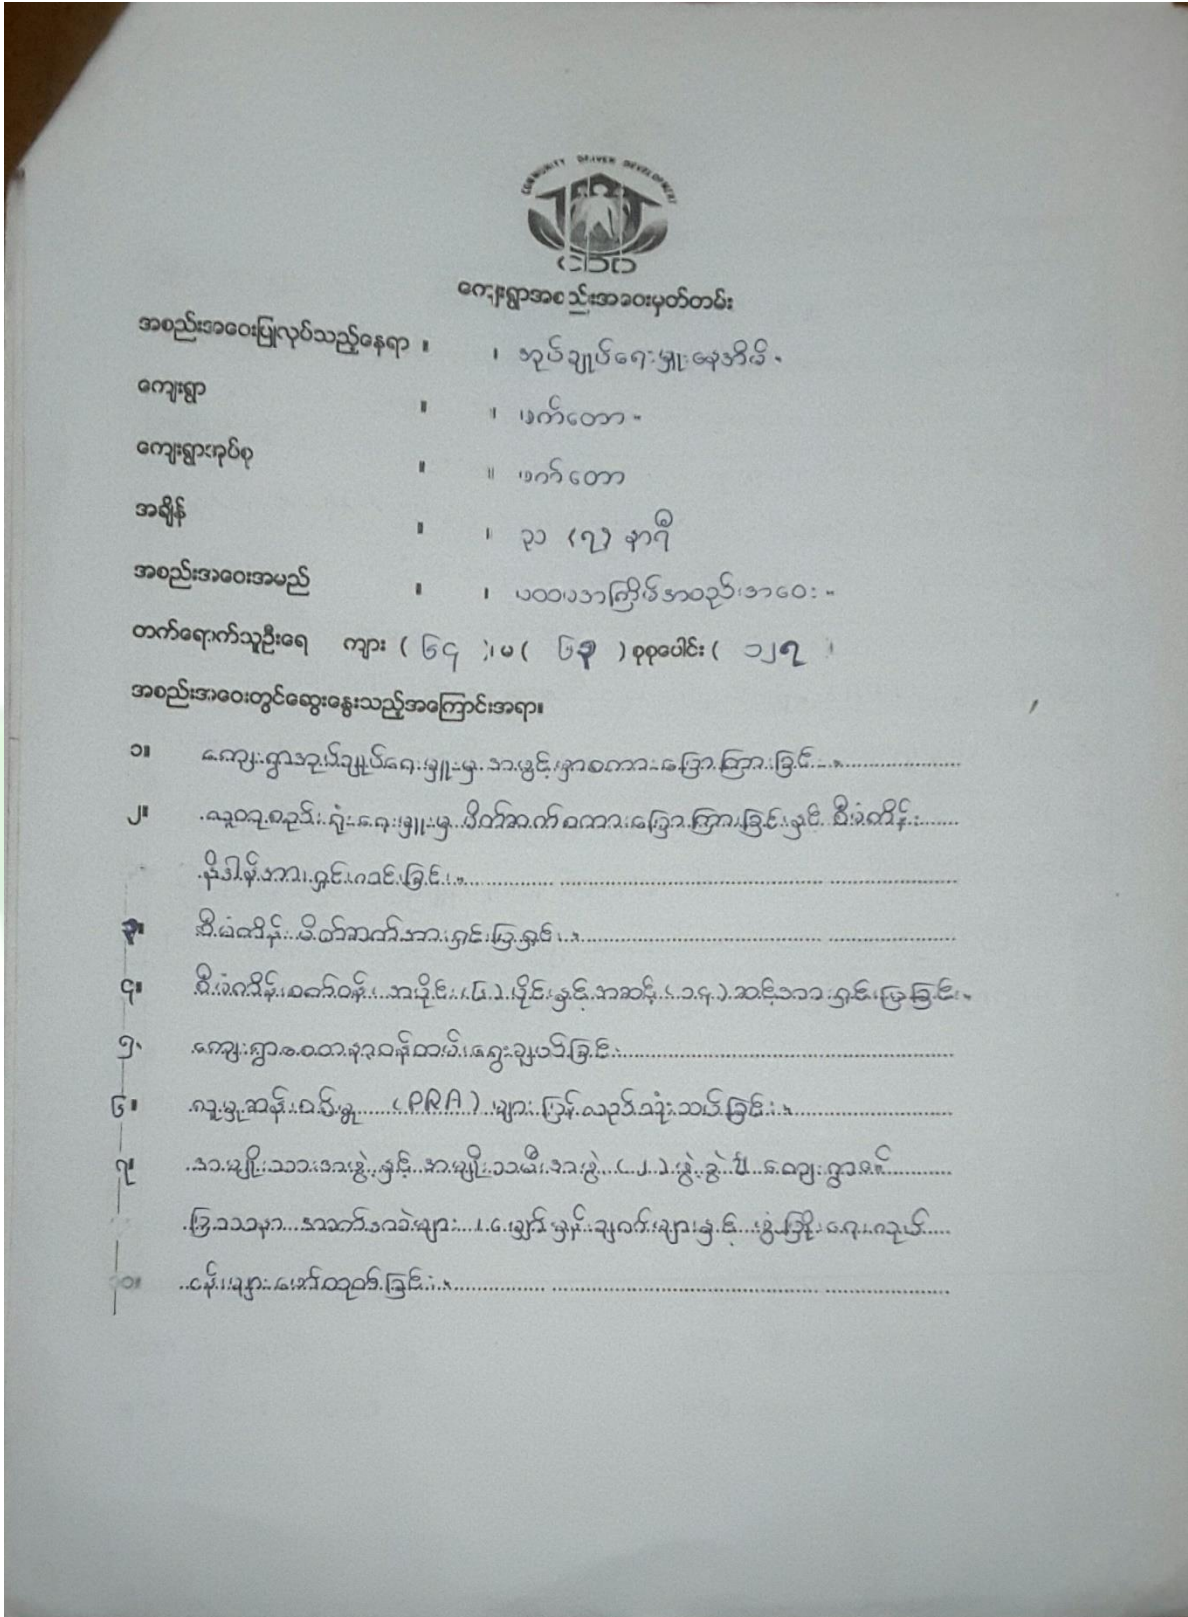 COMMUNITY DRIVEN DEVELOPMENT
CDD
ကျေးရွာအစည်းအဝေးမှတ်တမ်း
အစည်းအဝေးပြုလုပ်သည့်နေရာ ။ ။ အုပ်ချုပ်ရေးမှူးနေအိမ်။
ကျေးရွာ ။ ။ ဖက်တော။
ကျေးရွာအုပ်စု ။ ။ ဖက်တော
အချိန် ။ ။ ၃၁ (၇) နာရီ
အစည်းအဝေးအမည် ။ ။ ပထမအကြိမ်အစည်းအဝေး။
တက်ရောက်သူဦးရေ ကျား ( ၆၄ )၊ မ ( ၆၃ ) စုစုပေါင်း ( ၁၂၇
အစည်းအဝေးတွင်ဆွေးနွေးသည့်အကြောင်းအရာ။
၁။ ကျေးရွာအုပ်ချုပ်ရေးမှူးမှ အဖွင့်မှာစကားပြောကြားခြင်း။
၂။ လူထုစည်းရုံးရေးမှူးမှ မိတ်ဆက်စကားပြောကြားခြင်းနှင့် စီမံကိန်း
နိဒါန်းအားရှင်းလင်းခြင်း။
၃။ စီမံကိန်းမိတ်ဆက်အားရှင်းပြရှင်း။
၄။ စီမံကိန်းစက်ဝန်း အပိုင်း (၆) ပိုင်းနှင့်အဆင့် (၁၄) ဆင့်အားရှင်းပြခြင်း။
၅။ ကျေးရွာစေတနာ့ဝန်ထမ်းရွေးချယ်ခြင်း
၆။ လူမှုဆန်းစစ်မှု (PRA) များပြန်လည်သုံးသပ်ခြင်း။
၇။ အမျိုးသားအဖွဲ့နှင့် အမျိုးသမီးအဖွဲ့ (၂) ဖွဲ့ခွဲ၍ ကျေးရွာ၏
ပြဿနာ အခက်အခဲများ၊ မျှော်မှန်းချက်များနှင့် ဖွံ့ဖြိုးရေးလုပ်
ငန်းများဖော်ထုတ်ခြင်း။